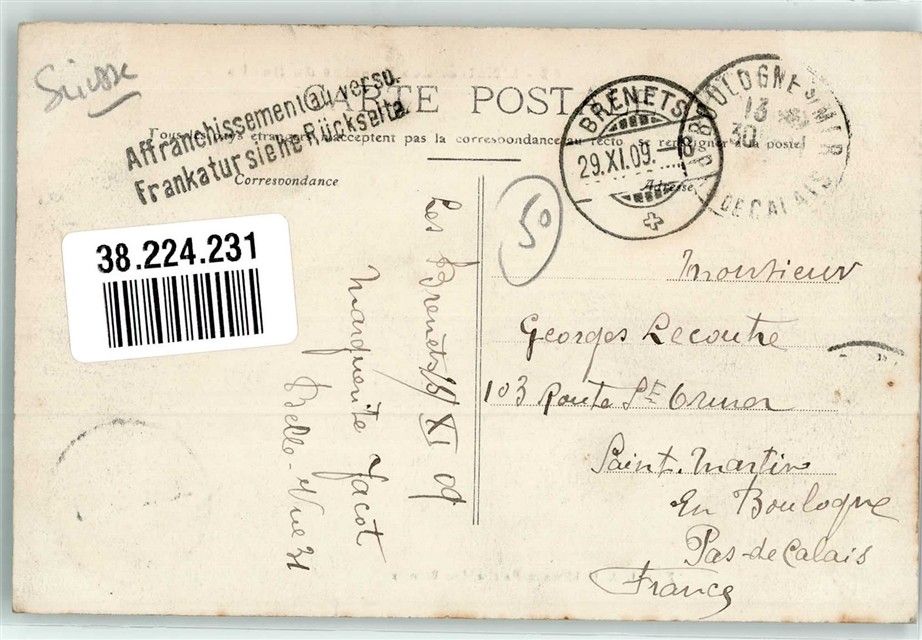 Suisse
Affranchissement au verso.
Frankatur siehe Rückseite
CARTE POSTALE
Tous les pays étrangers n'acceptent pas la correspondance au recto Se renseigner à la poste
Correspondance
Adresse
BRENETS
29.XI.09.-8
BOULOGNE S/MER
13
30
PAS DE CALAIS
38.224.231
50
Les Brenets
XI 09
Marguerite Jacot
Belle-Vue 21
Monsieur
Georges Lecoutre
103 Route St Omer
Saint. Martin
En Boulogne
Pas-de Calais
France